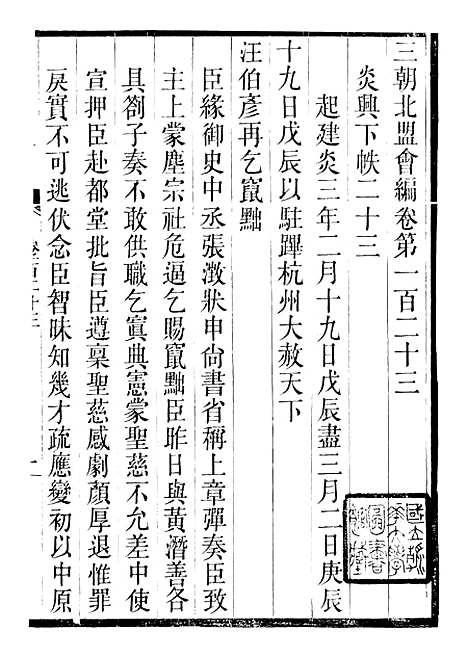 三朝北盟會編卷第一百二十三
炎興下帙二十三
起建炎三年二月十九日戊辰盡三月二日庚辰
十九日戊辰以駐蹕杭州大赦天下
汪伯彥再乞竄黜
臣緣御史中丞張澂狀申尙書省稱上章彈奏臣致
主上蒙塵宗社危逼乞賜竄黜臣昨日與黃潛善各
具劄子奏不敢供職乞寘典憲蒙聖慈不允差中使
宣押臣赴都堂批旨臣遵稟聖慈感劇顏厚退惟罪
戾實不可逃伏念臣智昧知幾才疏應變初以中原
卷百二十三
一